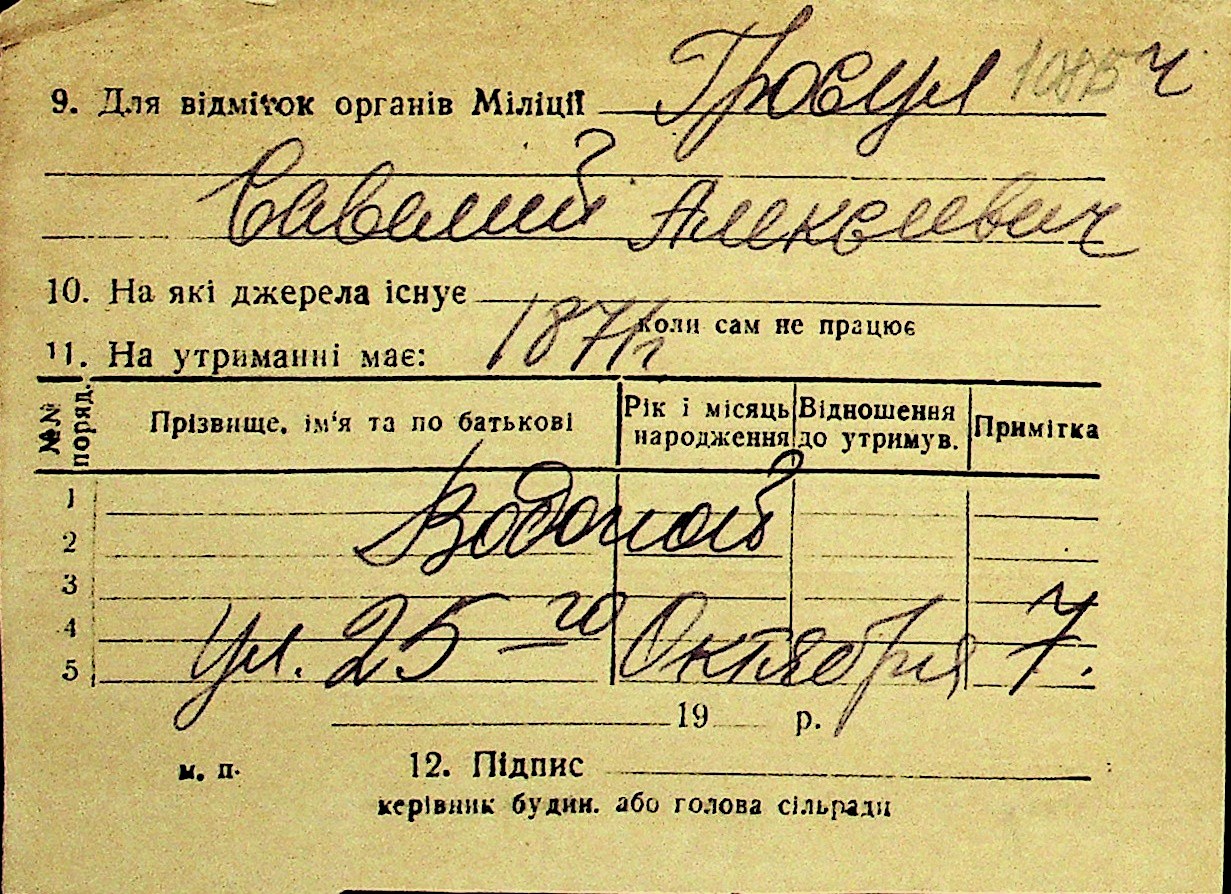 9. Для відміток органів Міліції Гросул 1085 ч
Савелий Алексеевич
10. На які джерела існує
коли сам не працює
11. На утриманні має: 1871 г
№№ поряд. Прізвище, ім'я та по батькові Рік і місяць народження Відношення до утримув. Примітка
1
Водопой
2
3
4 ул. 25-го Октября 7.
5
19 р.
м. п. 12. Підпис
керівник будин. або голова сільради